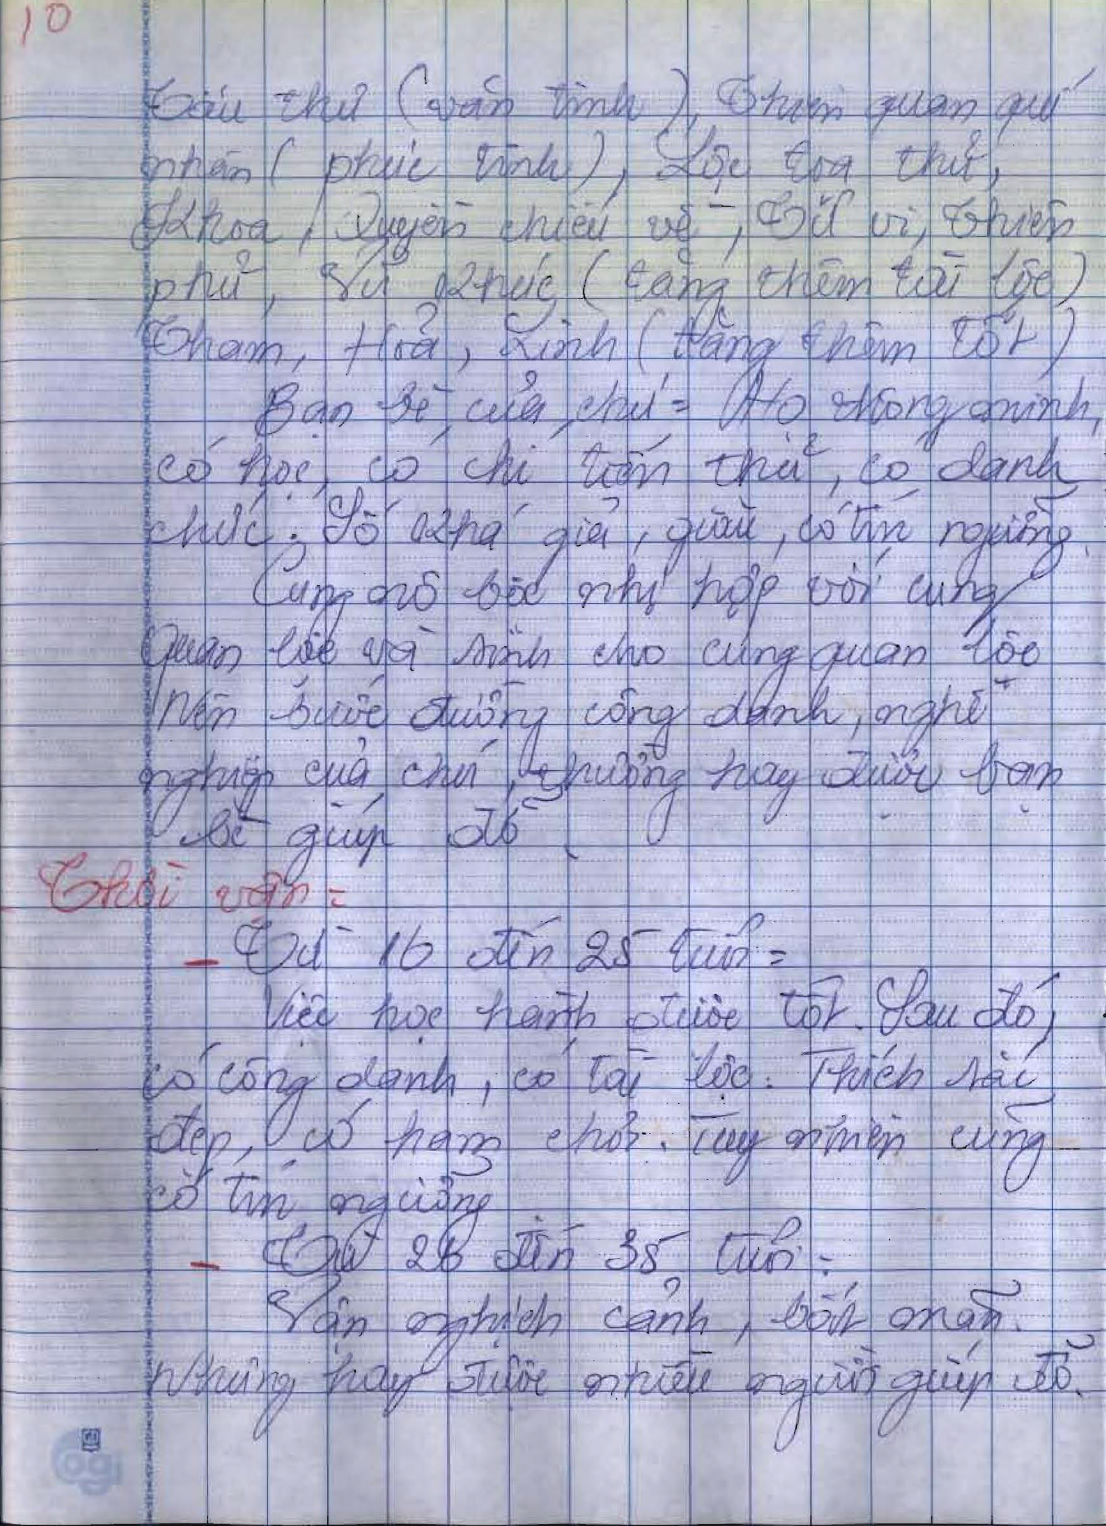 10
Tấu thư (văn tinh), Thiên quan quí
nhân (phúc tinh), Lộc tọa thủ,
Khoa, Quyền chiếu về, Tử vi, Thiên
phủ, Vũ khúc (tăng thêm tài lộc)
Tham, Hỏa, Linh (tăng thêm tốt)
Bạn bè của chú = Họ thông minh,
có học, có chí tiến thủ, có danh
chức. Số khá giả, giàu, có tín ngưỡng.
Cung nô bộc nhị hợp với cung
Quan lộc và sinh cho cung quan lộc
Nên bước đường công danh, nghề
nghiệp của chú, thường hay được bạn
bè giúp đỡ.
Thời vận =
- Từ 16 đến 25 tuổi =
Việc học hành được tốt. Sau đó,
có công danh, có tài lộc. Thích sắc
đẹp, có ham chơi. Tuy nhiên cũng
có tín ngưỡng
- Từ 26 đến 35 tuổi =
Vận nghịch cảnh, bất mãn.
Nhưng hay được nhiều người giúp đỡ.
ogi